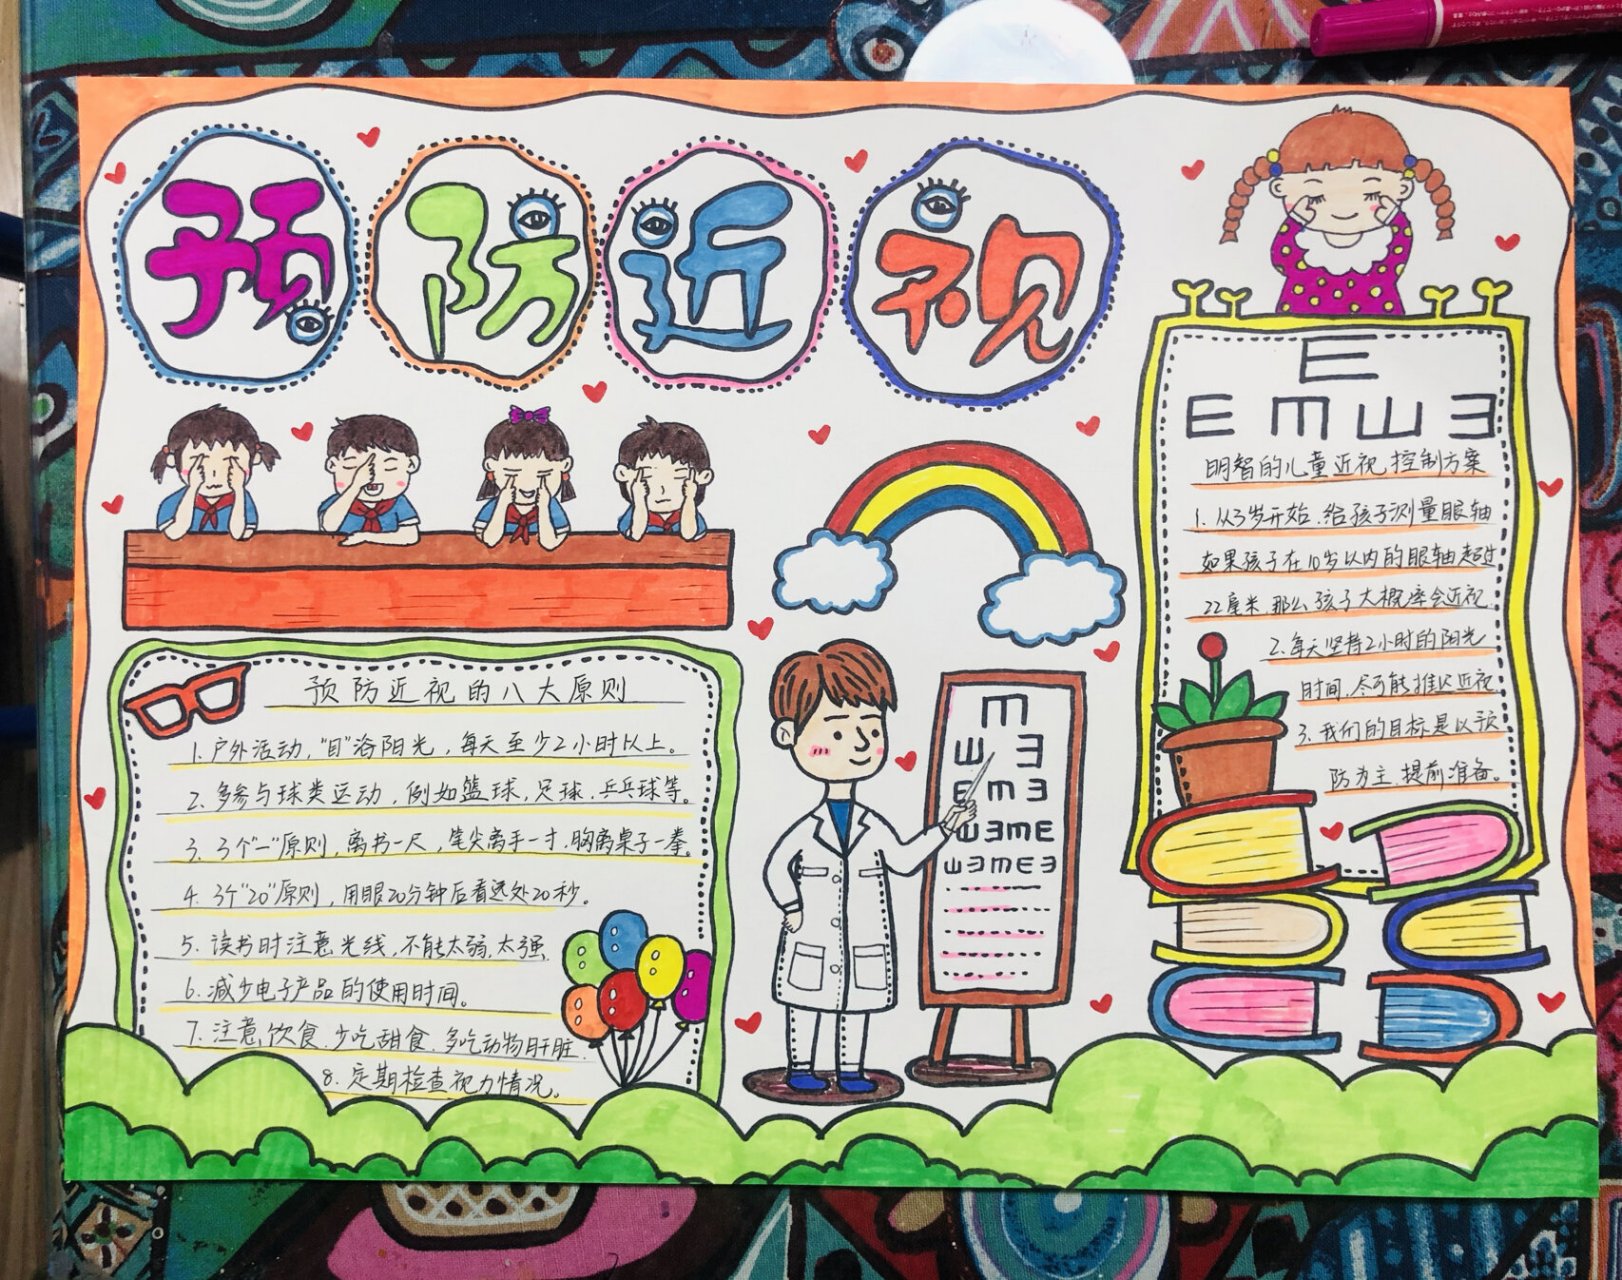 预防近视
E
E m ш ヨ
明智的儿童近视控制方案
1. 从3岁开始.给孩子测量眼轴
如果孩子在10岁以内的眼轴超过
22厘米,那么孩子大概率会近视
2.每天坚持2小时的阳光
时间,尽可能推迟近视
3.我们的目标是以预
防为主.提前准备。
预防近视的八大原则
1.户外活动,“目”浴阳光,每天至少2小时以上。
2.多参与球类运动,例如篮球,足球.乒乓球等。
3.3个“一”原则,离书一尺,笔尖离手一寸.胸离桌子一拳。
4.3个“20”原则,用眼20分钟后看远处20秒。
5.读书时注意光线,不能太弱.太强.
6.减少电子产品的使用时间。
7.注意饮食.少吃甜食.多吃动物肝脏.
8.定期检查视力情况。
m
ш ヨ
E m ヨ
ш ヨ m E
ш ヨ m E ヨ